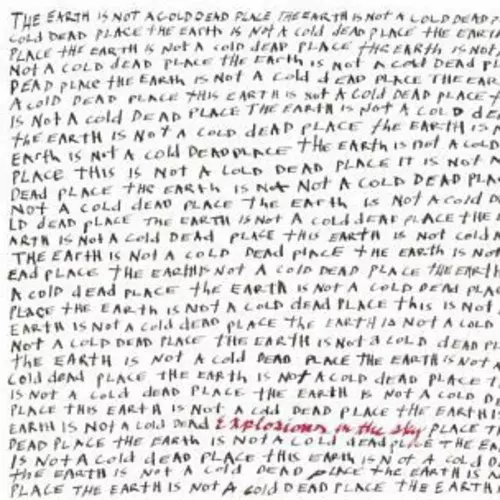 THE EARTH IS NOT A COLD DEAD PLACE THE EARTH IS NOT A COLD DEAD
COLD DEAD PLACE THE EARTH IS NOT A COLD DEAD PLACE THE EARTH
PLACE THE EARTH IS NOT A COLD DEAD PLACE THE EARTH IS NOT
NOT A COLD DEAD PLACE THE EARTH IS NOT A COLD DEAD PL
DEAD PLACE THE EARTH IS NOT A COLD DEAD PLACE THE EAR
A COLD DEAD PLACE THIS EARTH IS NOT A COLD DEAD PLACE
IS NOT A COLD DEAD PLACE THE EARTH IS NOT A COLD DE
THE EARTH IS NOT A COLD DEAD PLACE THE EARTH IS
EARTH IS NOT A COLD DEAD PLACE THE EARTH IS NOT A COLD
PLACE THIS IS NOT A COLD DEAD PLACE IT IS NOT A
DEAD PLACE THE EARTH IS NOT NOT A COLD DEAD PLA
NOT A COLD DEAD PLACE THE EARTH IS NOT A COLD D
LD DEAD PLACE THE EARTH IS NOT A COLD DEAD PLACE THE
ARTH IS NOT A COLD DEAD PLACE THIS EARTH IS NOT COLD
THE EARTH IS NOT A COLD DEAD PLACE THE EARTH IS NOT
EAD PLACE THE EARTH IS NOT A COLD DEAD PLACE THE EARTH
A COLD DEAD PLACE THE EARTH IS NOT A COLD DEAD PLAC
PLACE THE EARTH IS NOT A COLD DEAD PLACE THIS IS NOT
EARTH IS NOT A COLD DEAD PLACE THE EARTH IS NOT A COLD
NOT A COLD DEAD PLACE THE EARTH IS NOT A COLD DEAD PL
THE EARTH IS NOT A COLD DEAD PLACE THE EARTH IS NOT A
COLD DEAD PLACE THE EARTH IS NOT A COLD DEAD PLACE T
IS NOT A COLD DEAD PLACE THE EARTH IS NOT A COLD D
PLACE THIS EARTH IS NOT A COLD DEAD PLACE THE EARTH
EARTH IS NOT A COLD DEAD Explosions in the sky PLACE T
DEAD PLACE THE EARTH IS NOT A COLD DEAD PLACE THE EA
IS NOT A COLD DEAD PLACE THIS EARTH IS NOT A COLD
THE EARTH IS NOT A COLD DEAD PLACE THE EARTH IS A
PLACE THE EARTH IS NOT A COLD DEAD PLACE THE EARTH